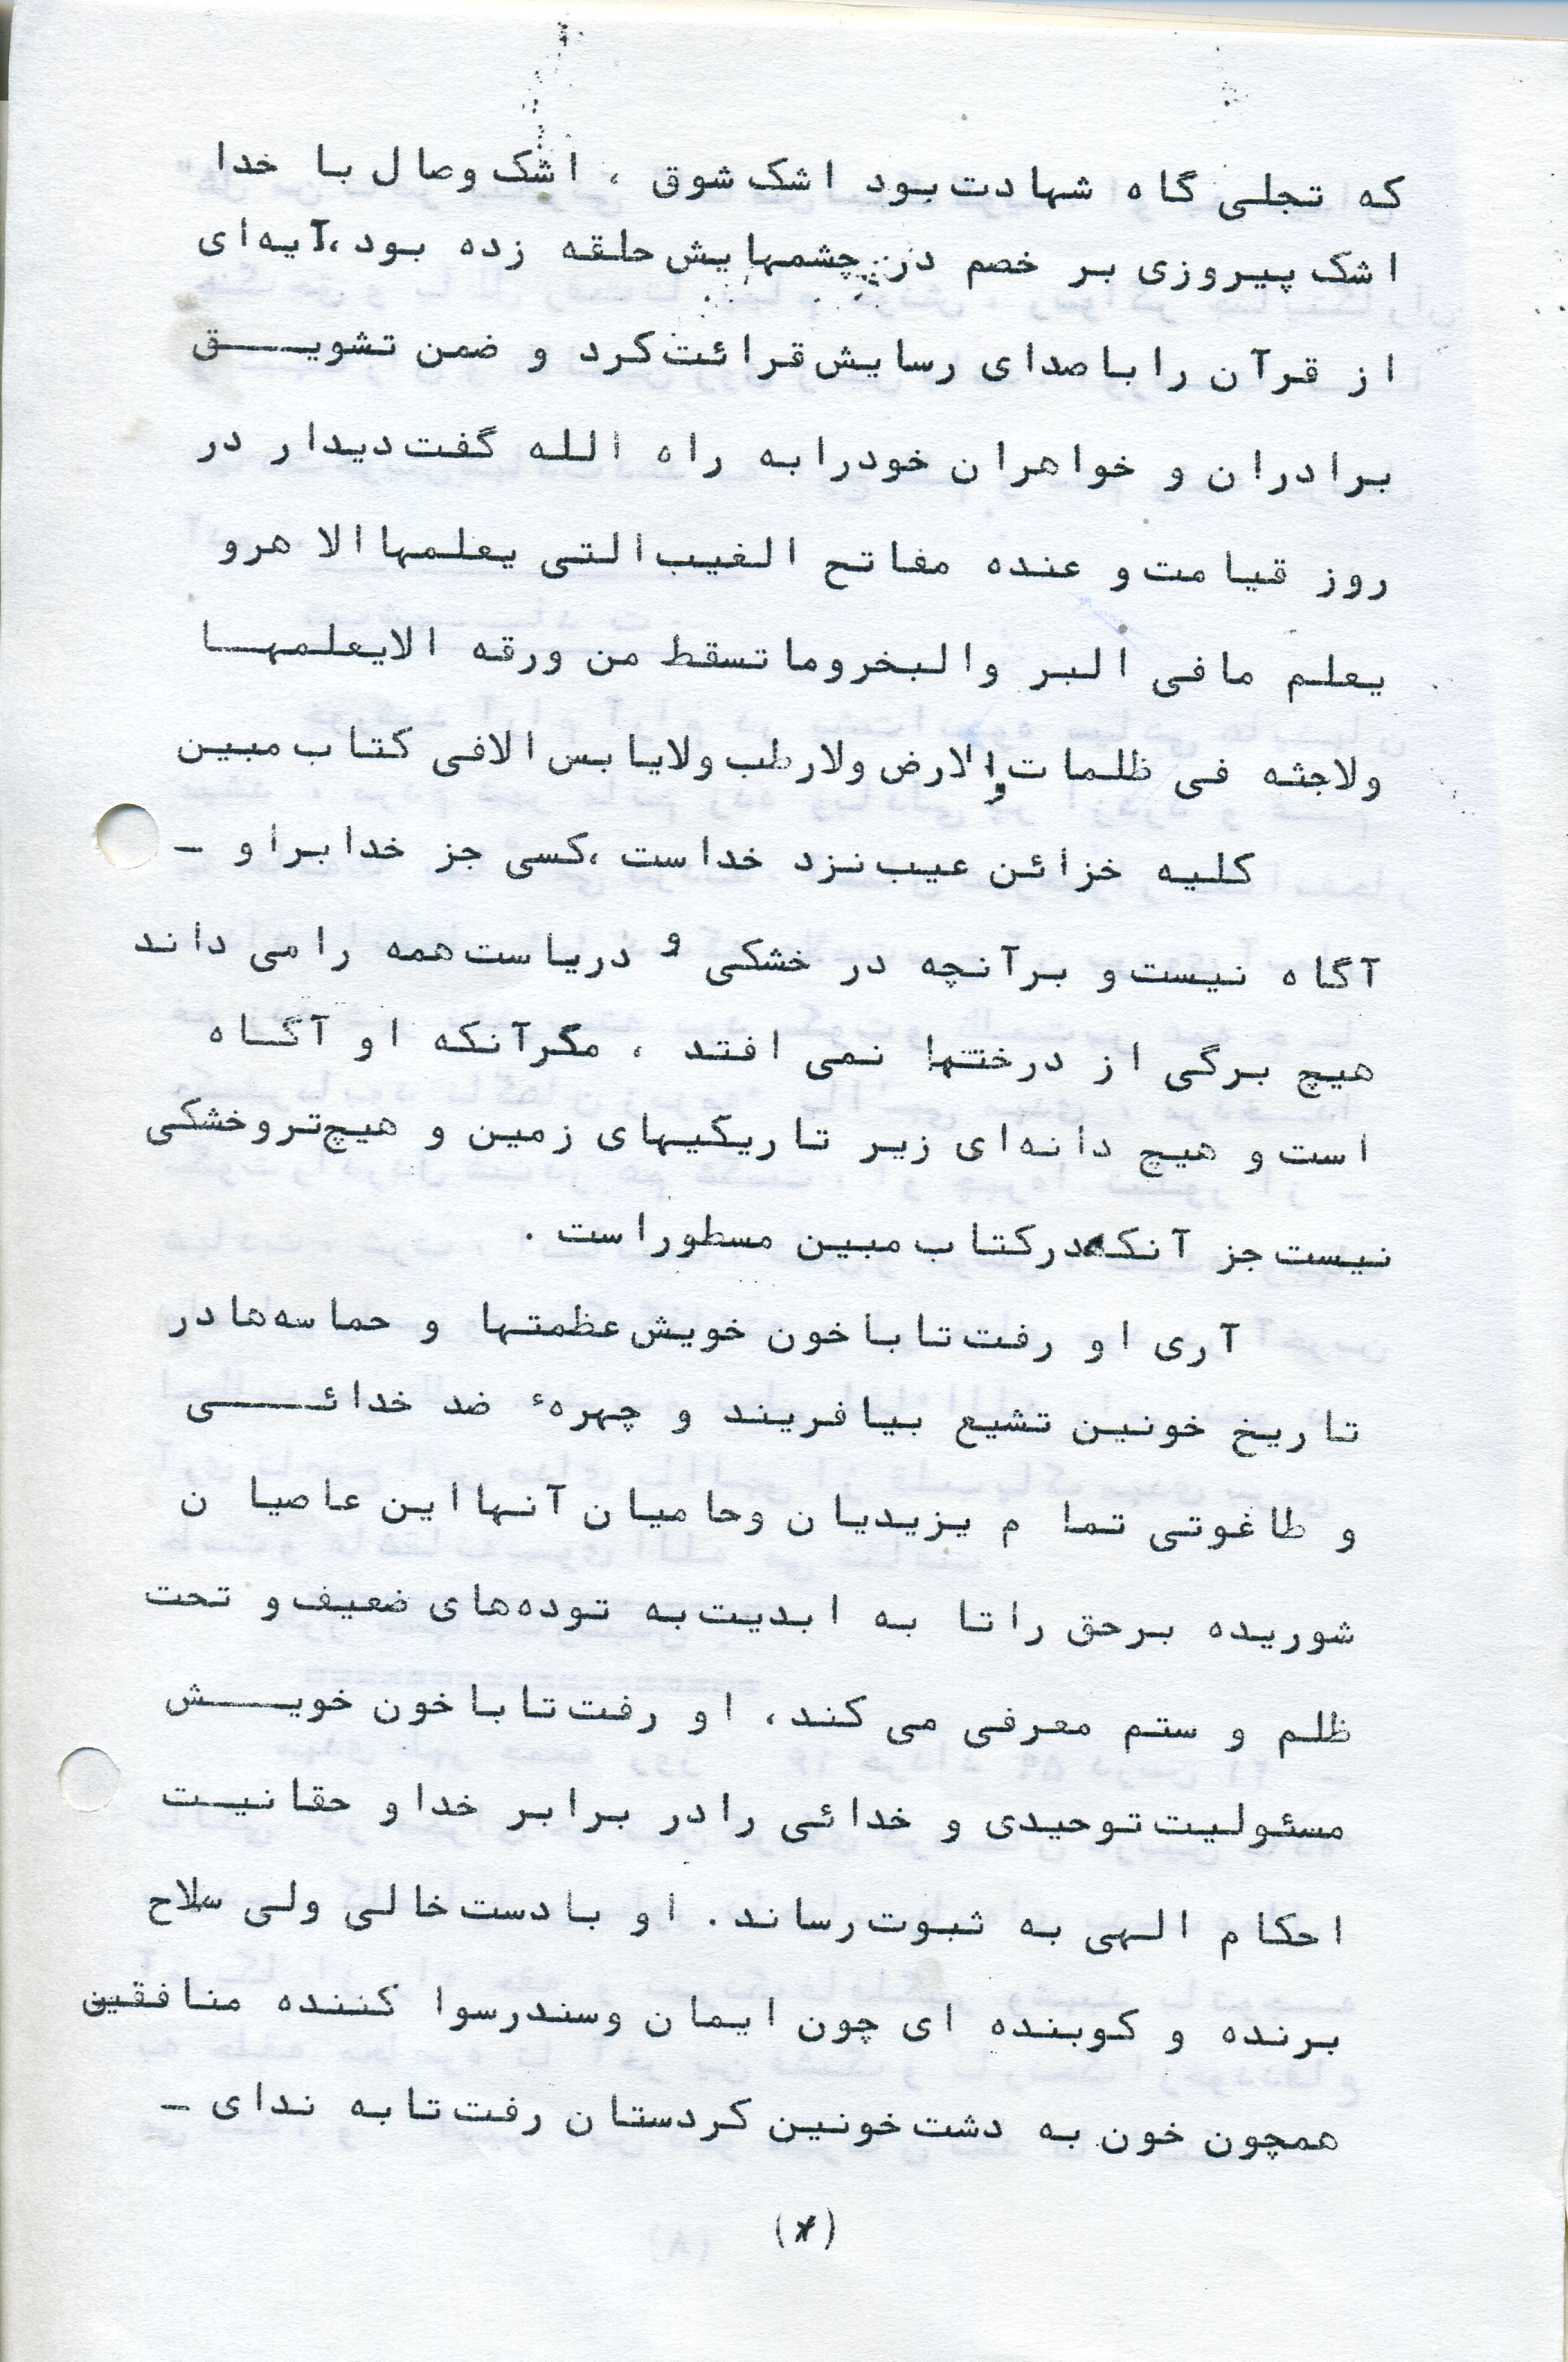 که تجلی گاه شهادت بود اشک شوق ، اشک وصال با خدا
اشک پیروزی بر خصم در چشمهایش حلقه زده بود ،آیه‌ای
از قرآن را با صدای رسایش قرائت کرد و ضمن تشویق
برادران و خواهران خود را به راه الله گفت دیدار در
روز قیامت و عنده مفاتح الغیب التی یعلمها الا هرو
یعلم مافی البر والبخروما تسقط من ورقه الایعلمها
ولاجثه فی ظلمات والارض ولارطب ولایابس الافی کتاب مبین
کلیه خزائن عیب نزد خداست ،کسی جز خدا براو -
آگاه نیست و برآنچه در خشکی و دریاست همه را می داند
هیچ برگی از درختها نمی افتد ، مگرآنکه او آگاه
است و هیچ دانه‌ای زیر تاریکیهای زمین و هیچ تروخشکی
نیست جز آنکه درکتاب مبین مسطوراست .
آری او رفت تا با خون خویش عظمتها و حماسه‌ها در
تاریخ خونین تشیع بیافریند و چهرهٔ ضد خدائی
و طاغوتی تمام یزیدیان وحامیان آنها این عاصیان
شوریده برحق را تا به ابدیت به توده‌های ضعیف و تحت
ظلم و ستم معرفی می کند، او رفت تا با خون خویش
مسئولیت توحیدی و خدائی را در برابر خدا و حقانیت
احکام الهی به ثبوت رساند. او با دست خالی ولی سلاح
برنده و کوبنده ای چون ایمان وسندرسوا کننده منافقین
همچون خون به دشت خونین کردستان رفت تا به ندای -